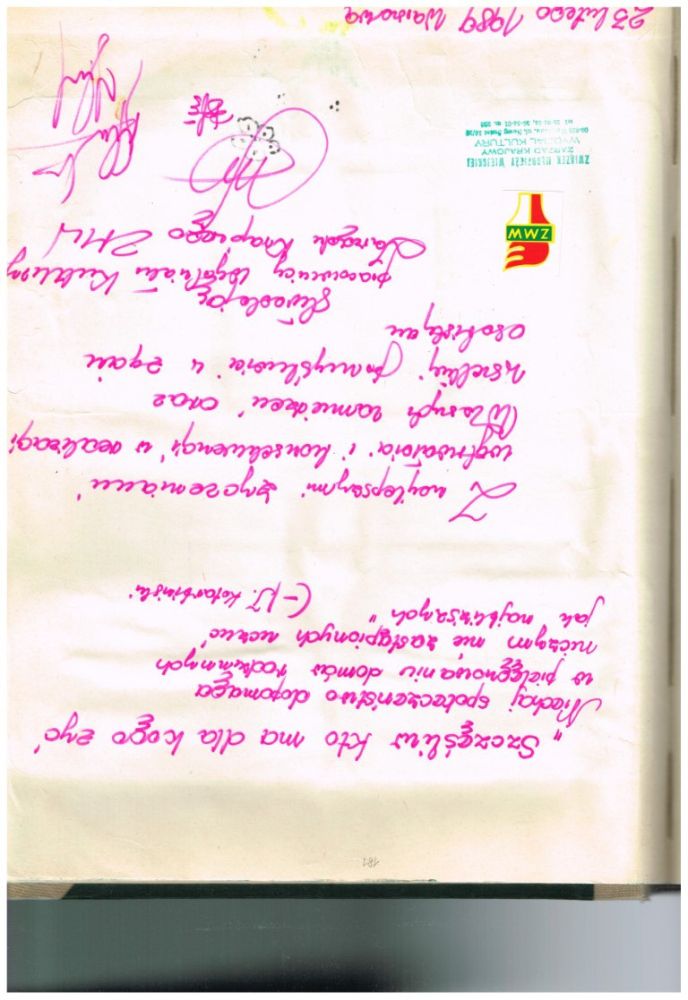 181
"Szczęśliw kto ma dla kogo żyć
Niechaj społeczeństwo dopomaga
w pielęgnowaniu domów rodzinnych
niczym nie zastąpionych uczuć
jak najbliższych"
(-) T. Kotarbiński
Z najlepszymi życzeniami
wytrwałości i konsekwencji w realizacji
Własnych zamierzeń oraz
wszelkiej pomyślności w życiu
osobistym
Składają
pracownicy Wydziału Kultury
Zarządu Krajowego ZMW
ZMW
ZWIĄZEK MŁODZIEŻY WIEJSKIEJ
ZARZĄD KRAJOWY
WYDZIAŁ KULTURY
23 lutego 1989 Warszawa